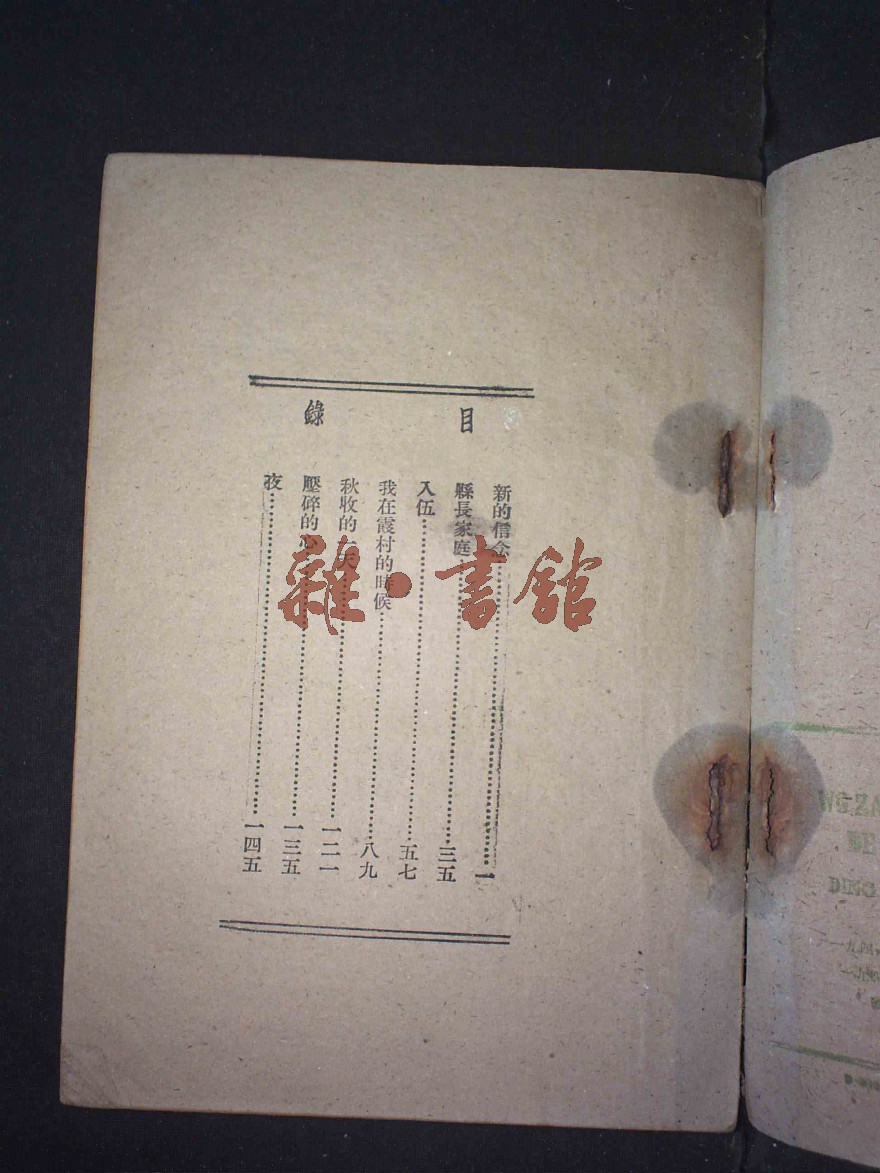 目錄
新的信念……一
縣長家庭……三五
入伍……五七
我在霞村的時候……八九
秋收的一天……一二一
壓碎的心……一三五
夜……一四五
雜·書館
WO ZA
DE
DING